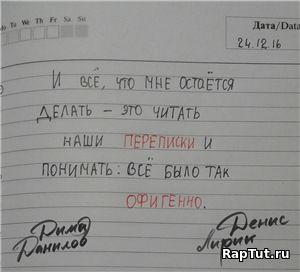 Mo Tu We Th Fr Sa Su
Дата/Data
24.12.16
И ВСЁ, ЧТО МНЕ ОСТАЁТСЯ
ДЕЛАТЬ – ЭТО ЧИТАТЬ
НАШИ ПЕРЕПИСКИ И
ПОНИМАТЬ: ВСЁ БЫЛО ТАК
ОФИГЕННО.
Дима Денис
Данилов Лирик
RapTut.ru